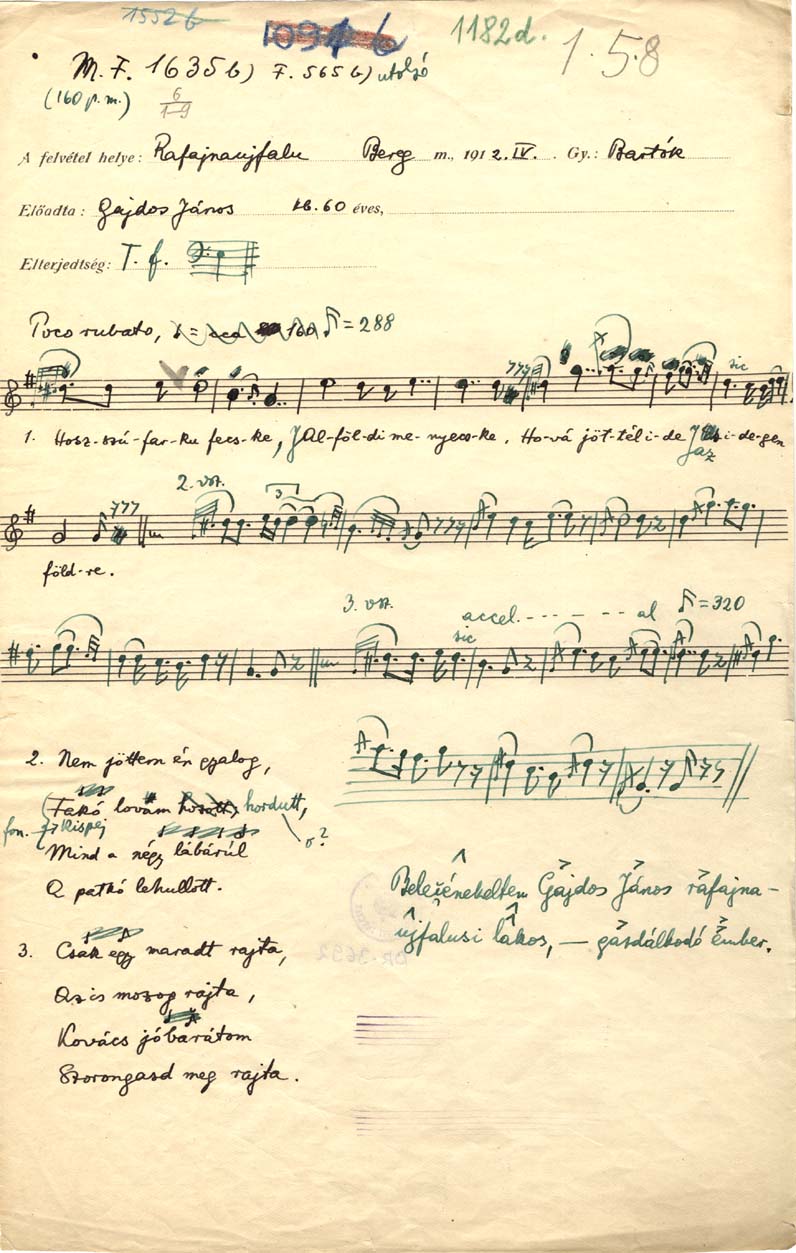 1552 b
1182 d.
1.5.8
M. F. 1635 b) F. 565 b) utolsó
(160 p. m.) 6
1-9
A felvétel helye: Rafajnaujfalu Bereg m., 1912. IV. Gy.: Bartók
Előadta: Gajdos János 60 éves,
Elterjedtség: T. f.
Poco rubato, ♪ = 288
777
sic
1. Hosz-szú-far-ku fecs-ke, JAl-föl-di me-nyecs-ke. Ho-vá jöt-tél i-de Jaz i-de-gen
2. vsz.
777
3
föld-re.
3. vsz.
accel. - - - - - - - al ♪ = 320
sic
2. Nem jöttem én gyalog,
Fakó lovam hozott, hordutt,
fon. kispej
o?
Mind a négy lábárúl
A patkó lehullott.
Beleénekeltem Gajdos János rafajna-
újfalusi lakos, — gazdálkodó ember.
3. Csak egy maradt rajta,
Az is mozog rajta,
Kovács jóbarátom
Szorongasd meg rajta.